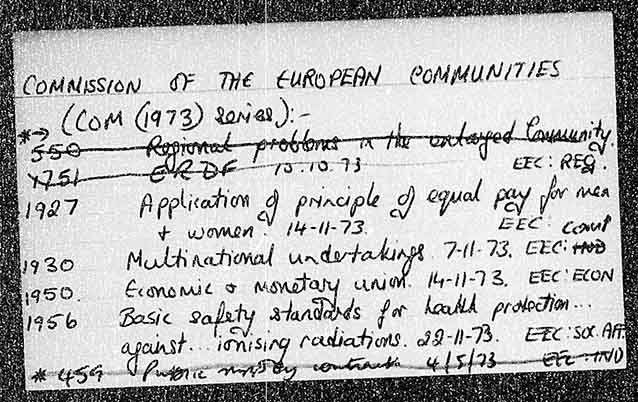 COMMISSION OF THE EUROPEAN COMMUNITIES
*→ (COM (1973) series):-
550 Regional problems in the enlarged Community.
1751 ERDF 10.10.73 EEC: REG.
1927 Application of principle of equal pay for men
+ women. 14-11-73. EEC:
1930 Multinational undertakings. 7-11-73. EEC: IND Comp
1950. Economic & monetary union. 14-11-73. EEC: ECON
1956 Basic safety standards for health protection...
against... ionising radiations. 22-11-73. EEC: SOC. AFF.
* 459 Public contracts 4/5/73 EEC: IND